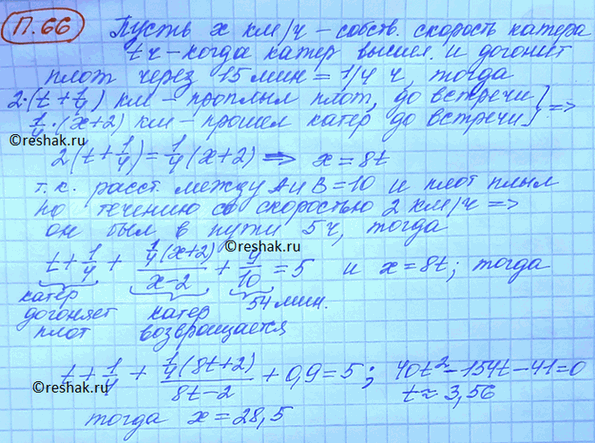 П.66 Пусть x км/ч - собств. скорость катера
t ч - когда катер вышел и догонит
плот через 15 мин = 1/4 ч, тогда
2·(t+1/4) км - проплыл плот, до встречи }
1/4·(x+2) км - прошел катер до встречи } =>
©reshak.ru
2(t+1/4)=1/4(x+2) => x=8t
т.к. расст. между A и B = 10 и плот плыл
по течению со скоростью 2 км/ч =>
он был в пути 5ч, тогда
©reshak.ru
t+1/4 + 1/4(x+2)/(x-2) + 9/10 = 5 и x=8t; тогда
катер догоняет плот
катер возвращается
54 мин.
t+1/4 + 1/4(8t+2)/(8t-2) + 0,9=5; 40t²-154t-41=0
©reshak.ru
©reshak.ru
t≈3,56
тогда x=28,5